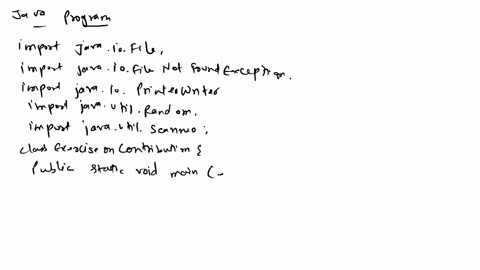 Java Program
import java.io.File,
import java.io.File Not Found Exception.
import java.io. PrinterWriter
import java.util.Random.
import java.util. Scanner;
class Exercise on Contribution {
Public static void main (-